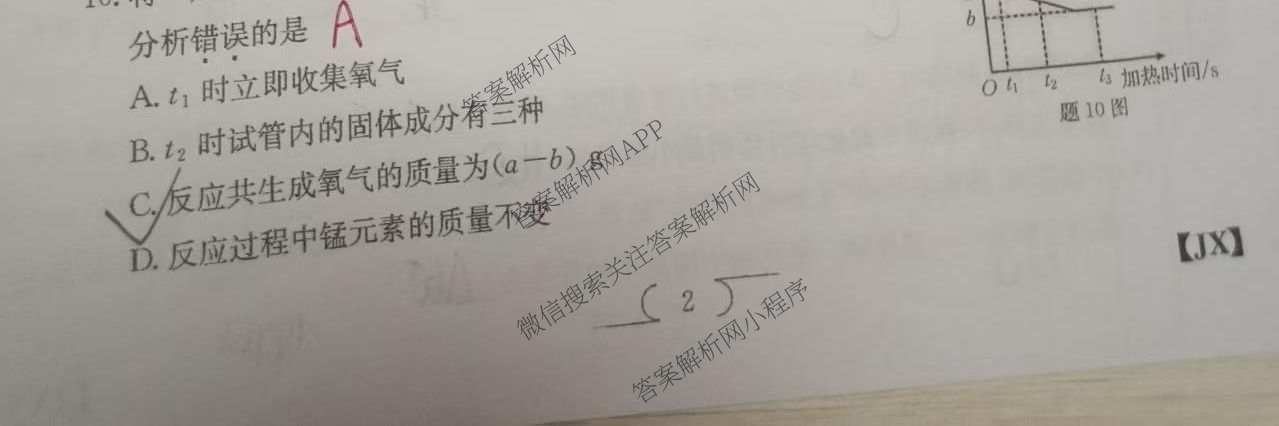 10. 将
分析错误的是 A
A. t₁ 时立即收集氧气
B. t₂ 时试管内的固体成分有三种
C. 反应共生成氧气的质量为(a-b) g
D. 反应过程中锰元素的质量不变
b
O t₁ t₂ t₃ 加热时间/s
题 10 图
【JX】
( 2 )
答案解析网
答案解析网APP
微信搜索关注答案解析网
答案解析网小程序